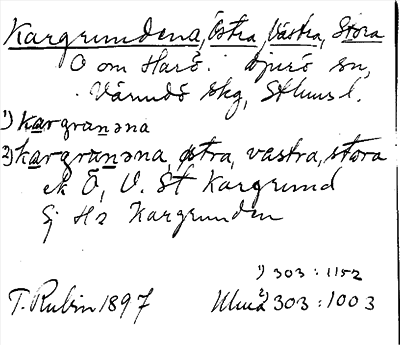 Kargrundena, Östra, Västra, Stora
O om Harö. Djurö sn,
Värmdö skg, Sthms l.
1) kargranəna
2) kargranəna, østra, vastra, stora
ek Ö, V. St Kargrund
Sj Ha Kargrunden
1) 303 : 1152
T. Rubin 1897 2) 303 : 1003